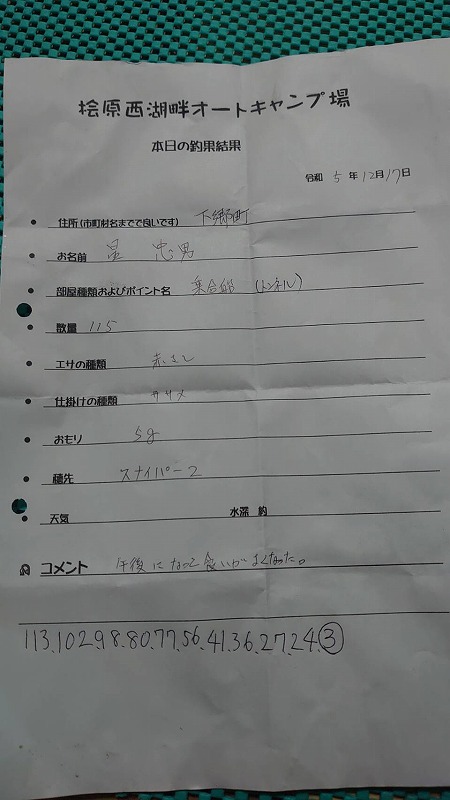 桧原西湖畔オートキャンプ場
本日の釣果結果
令和 5 年 12月 17日
住所(市町村名までで良いです) 下郷町
お名前 星 忠男
部屋種類およびポイント名 乗合船 (トンネル)
数量 115
エサの種類 赤さし
仕掛けの種類 ササメ
おもり 5g
穂先 スナイパー2
天気 水深 約
コメント 午後になって食いがよくなった。
113.102.98.80.77.56.41.36.27.24.③